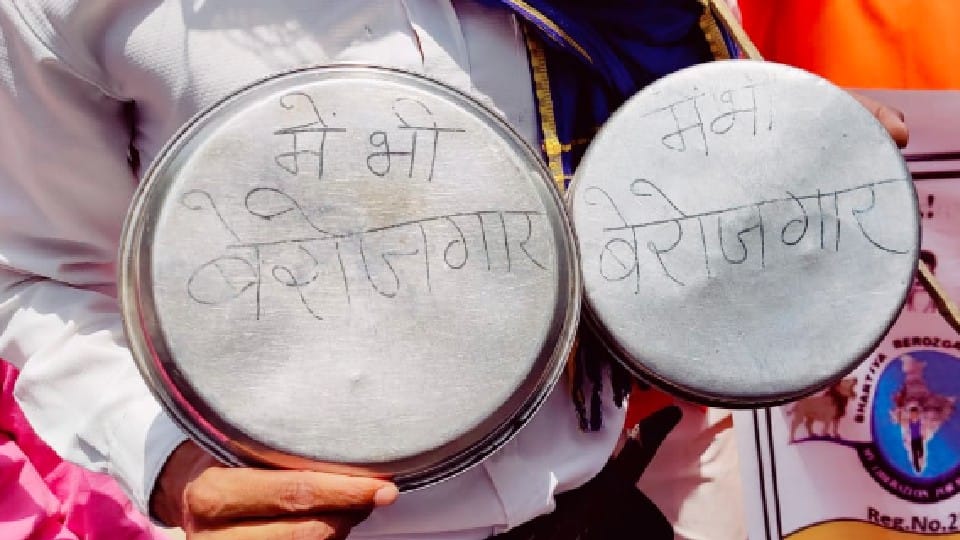 मैं भी
बेरोजगार
मैं भी
बेरोजगार
BHARTIYA BEROZGA
Reg.No.2